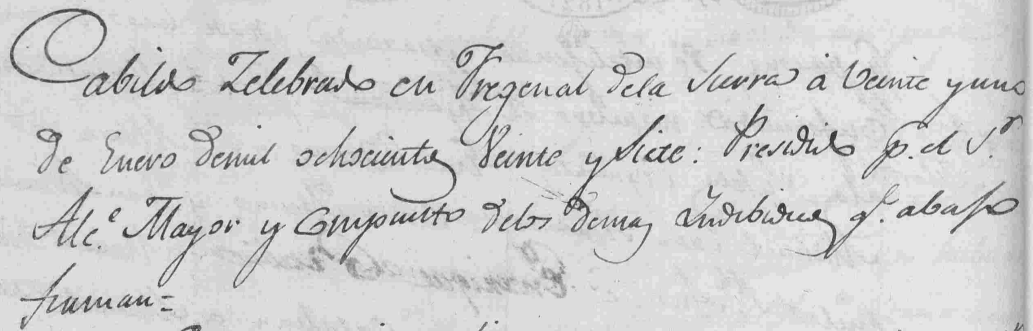 Cabildo Zelebrado en Fregenal dela Sierra á Veinte y uno
de Enero demil ochocientos Veinte y Siete: Presidido p.r el S.r
Alc.e Mayor y Compuesto delos demas Yndibiduos q.e abajo
firman=